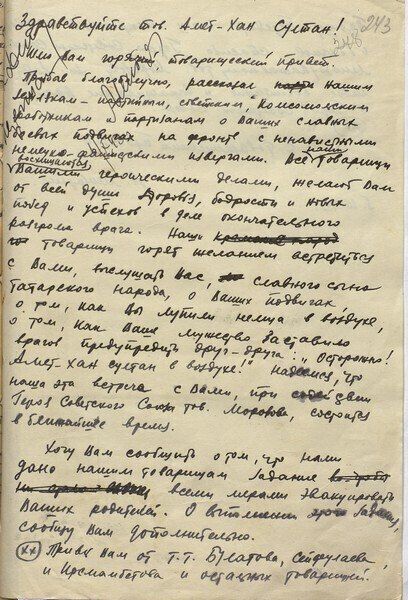 243
248
Здравствуйте тов. Амет-Хан Султан!
Шлю Вам горячий товарищеский привет.
Прибыв благополучно, рассказал нашим
партийным, советским, комсомольским
работникам и партизанам о Ваших славных
боевых подвигах на фронте с ненавистными
немецко-фашистскими извергами. Все наши товарищи
восхищаются
Вашими героическими делами, желают Вам
от всей души здоровья, бодрости и новых
побед и успехов в деле окончательного
разгрома врага. Наши
товарищи горят желанием встретиться
с Вами, выслушать Вас, славного сына
татарского народа, о Ваших подвигах
о том, как Вы лупили немца в воздухе,
о том, как Ваше мужество заставило
врагов предупредить друг-друга: "Осторожно!
Амет-Хан султан в воздухе!" Надеемся, что
наша эта встреча с Вами, при содействии
Героя Советского Союза тов. Морозова, состоится
в ближайшее время.
Хочу Вам сообщить о том, что нами
дано нашим товарищам задание
всеми мерами эвакуировать
Ваших родителей. О выполнении этого задания,
сообщу Вам дополнительно.
(хх) Привет Вам от т.т. Булатова, Сейфулаева,
и Исмаилова и остальных товарищей.